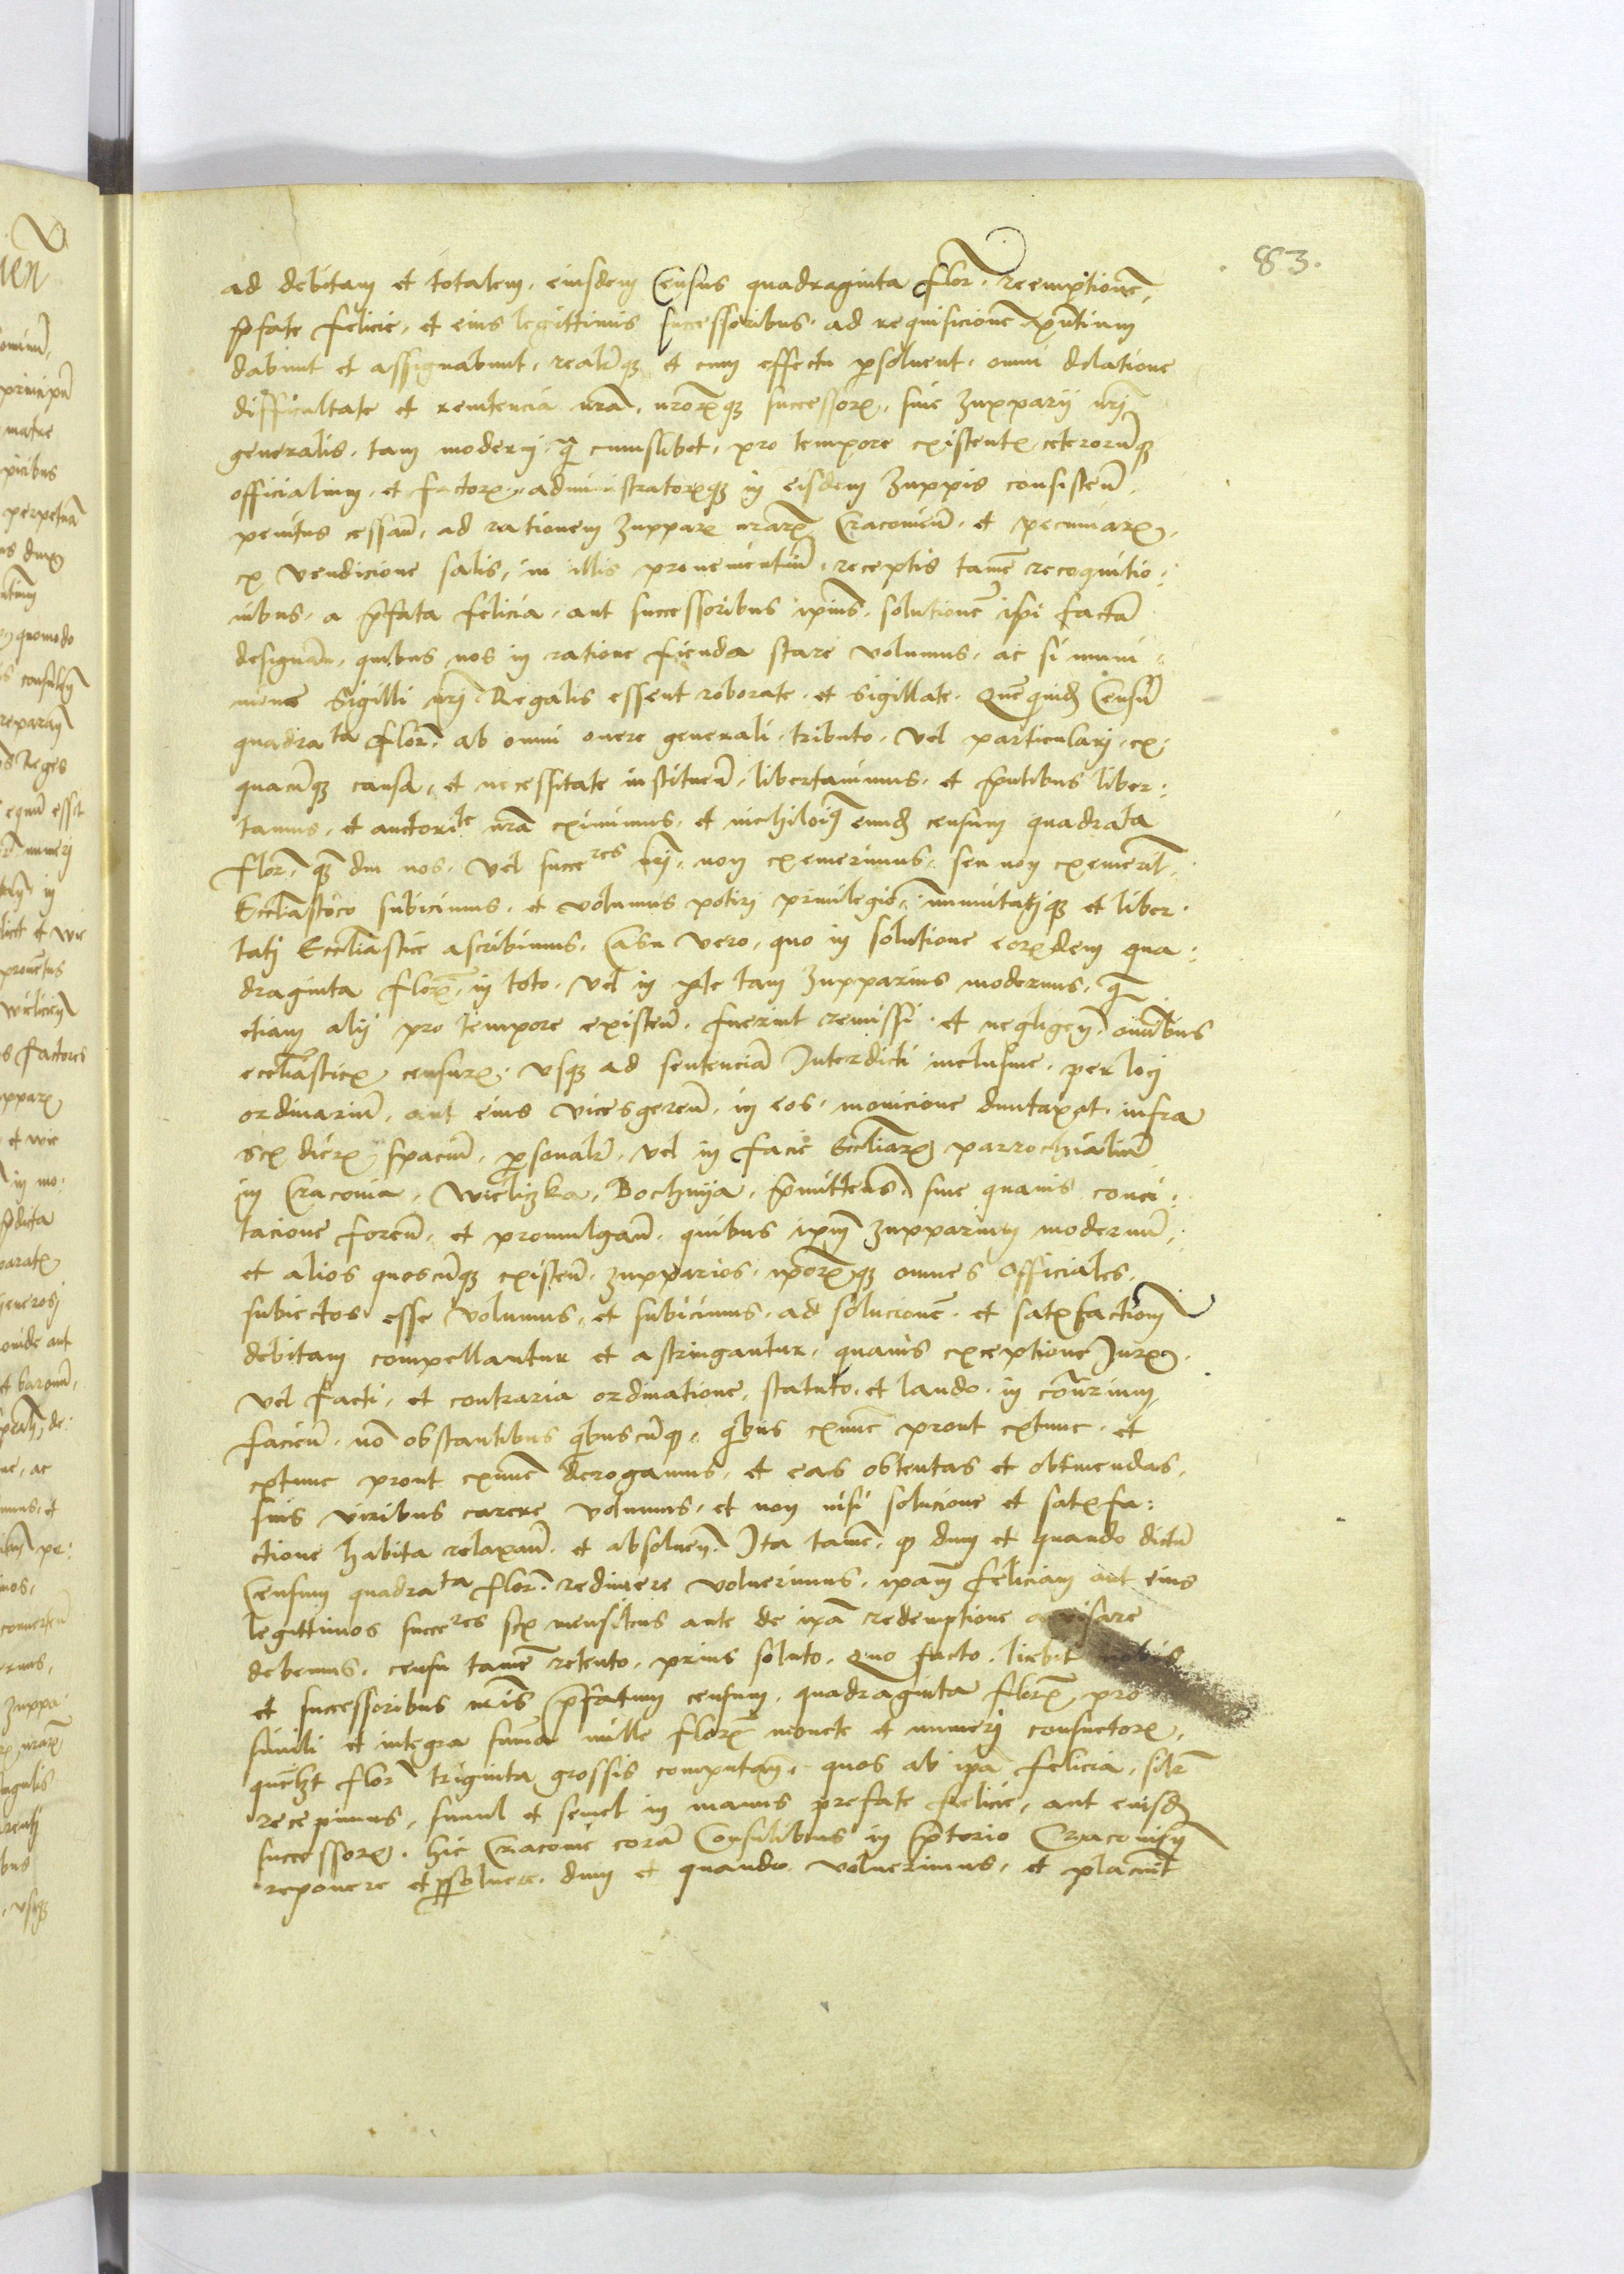 83.
ad debitam et totalem eiusdem Census quadraginta flor. reemptionem,
p̄fate Felicie, et eius legittimis successoribus ad requisicionē p̄ntium
dabunt et assignabunt, realiterq̨ et cum effectu p̱soluent, omni dilatione
difficultate et renitencia nrā, nrorumq̨ successorꝝ, siue Zupparij nrj
generalis, tam modernj q̄ cuiuslibet, pro tempore existentꝭ, ceterorūq̨
officialium et factorꝝ, administratorꝝq̨ in eisdem Zuppis consisteñ
penitus cessañ, ad rationem Zupparꝝ nrarꝝ Cracouieñ et pecuniarꝝ
ex vendicione salis, in illis proueniētiū, receptis tamē recognitio:
nibus, a p̄fata Felicia, aut successoribus ipius, solutionē ipi factā
designañ, quibus nos in ratione fienda stare volumus, ac si muni:
mine Sigilli nrj Regalis essent roborate et sigillate. Quēquidē Censū
quadrata flor. ab omni onere generali, tributo, vel particularj, ex
quacūq̨ causa, et necessitate institueñ, libertauimus, et p̄ntibus liber:
tamus, et auctorite nrā eximimus, et nichilomīq̄ eundē censum quadrata
flor. quē diu nos, vel succeres nrj, non exemerimus, seu non exemerīt,
Eccliastico subicimus, et volumus potirj priuilegio, immunitatjq̨ et liber:
tatj Eccliastice ascribimus, Casu vero, quo in solutione eorꝝdem qua:
draginta florꝝ in toto, vel in p̱te tam Zupparius modernus, q̄
etiam alij pro tempore existeñ, fuerint remissi et negligeñ, omībus
eccliasticꝭ censurꝭ, vsq̨ ad sentenciā Interdicti inclusiue, per locj
ordinariū, aut eius vicesgereñ, in eos, monicione duntaxat, infra
sex dierꝝ spaciū, p̱sonalr̄, vel in facie Eccliarꝝ parrochialiū
in Cracouia, Wieliczka, Bochnya, p̄mittens, sine quauis conci:
tacione foreñ, et promulgañ, quibus ipm̄ Zupparium modernū,
et alios quoscūq̨ existeñ Zupparios, ipōrꝝq̨ omnes Officiales,
subiectos esse volumus, et subicimus, ad solucionē et satꝭfactionē
debitam compellantur et astringantur, quauis exceptione Jurꝭ
vel facti, et contraria ordinatione, statuto, et laudo in cōtrarium
facieñ, nō obstantibus qibuscūq̨, qibus exnūc prout extunc, et
extunc prout exnūc derogamus, et eas obtentas et obtinendas,
suis viribus carere volumus, et non nisi solucione et satꝭfa:
ctione habita relaxañ et absolueñ. Ita tamē q̱ dum et quando dictū
Censum quadrata flor. redimere voluerimus, ipam̄ Feliciam aut eius
legittimos succeres sex mensibus ante de ipā redemptione auisare
debemus, censu tamē retento, prius soluto, Quo facto, licebit nobis
et successoribus nrīs p̄fatum censum, quadraginta florꝝ, pro
simili et integra sum̄a mille florꝝ monete et numerj consuetorꝝ,
quēlzt flor triginta grossis computañ, quos ab ipā Felicia, silr̄
recepimus, simul et semel in manus prefate Felicie, aut eiusdē
successorꝝ, hic Cracouie corā Consulibus in p̄torio Cracouieñ
reponere et p̱soluere, dum et quando voluerimus, et placuīt